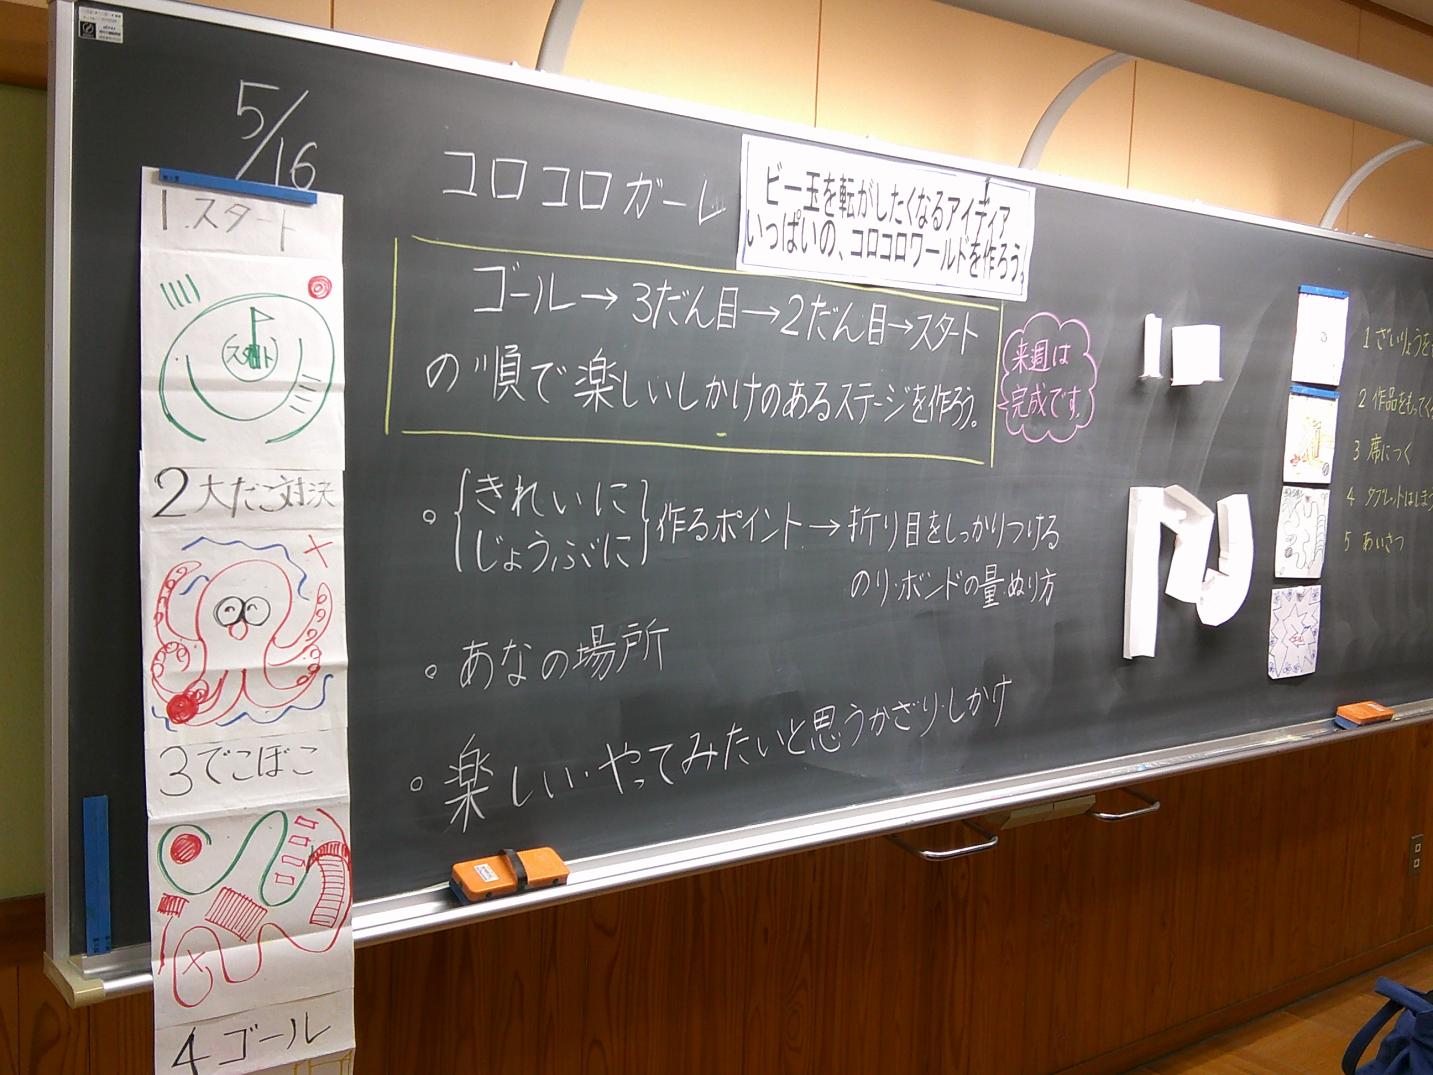 5/16
コロコロガーレ
ビー玉を転がしたくなるアイディア
いっぱいの、コロコロワールドを作ろう。
ゴール→3だん目→2だん目→スタート
の順で楽しいしかけのあるステージを作ろう。
来週は
完成です。
。{きれいに
じょうぶに}作るポイント→折り目をしっかりつける
のり・ボンドの量・ぬり方
。あなの場所
。楽しい・やってみたいと思うかざり・しかけ
1.スタート
スタート
2大だこ対決
3でこぼこ
4ゴール
1 ざいりょうを
2 作品をもってく
3 席につく
4 タブレットはしまう
5 あいさつ